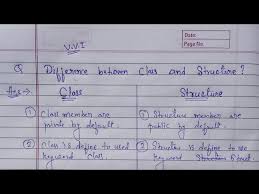 V.V.I
Date:
Page No:
Q Difference between Class and Structure?
Ans:→ Class Structure
① Class member are ① Structure member are
private by default. public by default.
② Class is define to used ② Structure is define to use
keyword class. keyword Structure